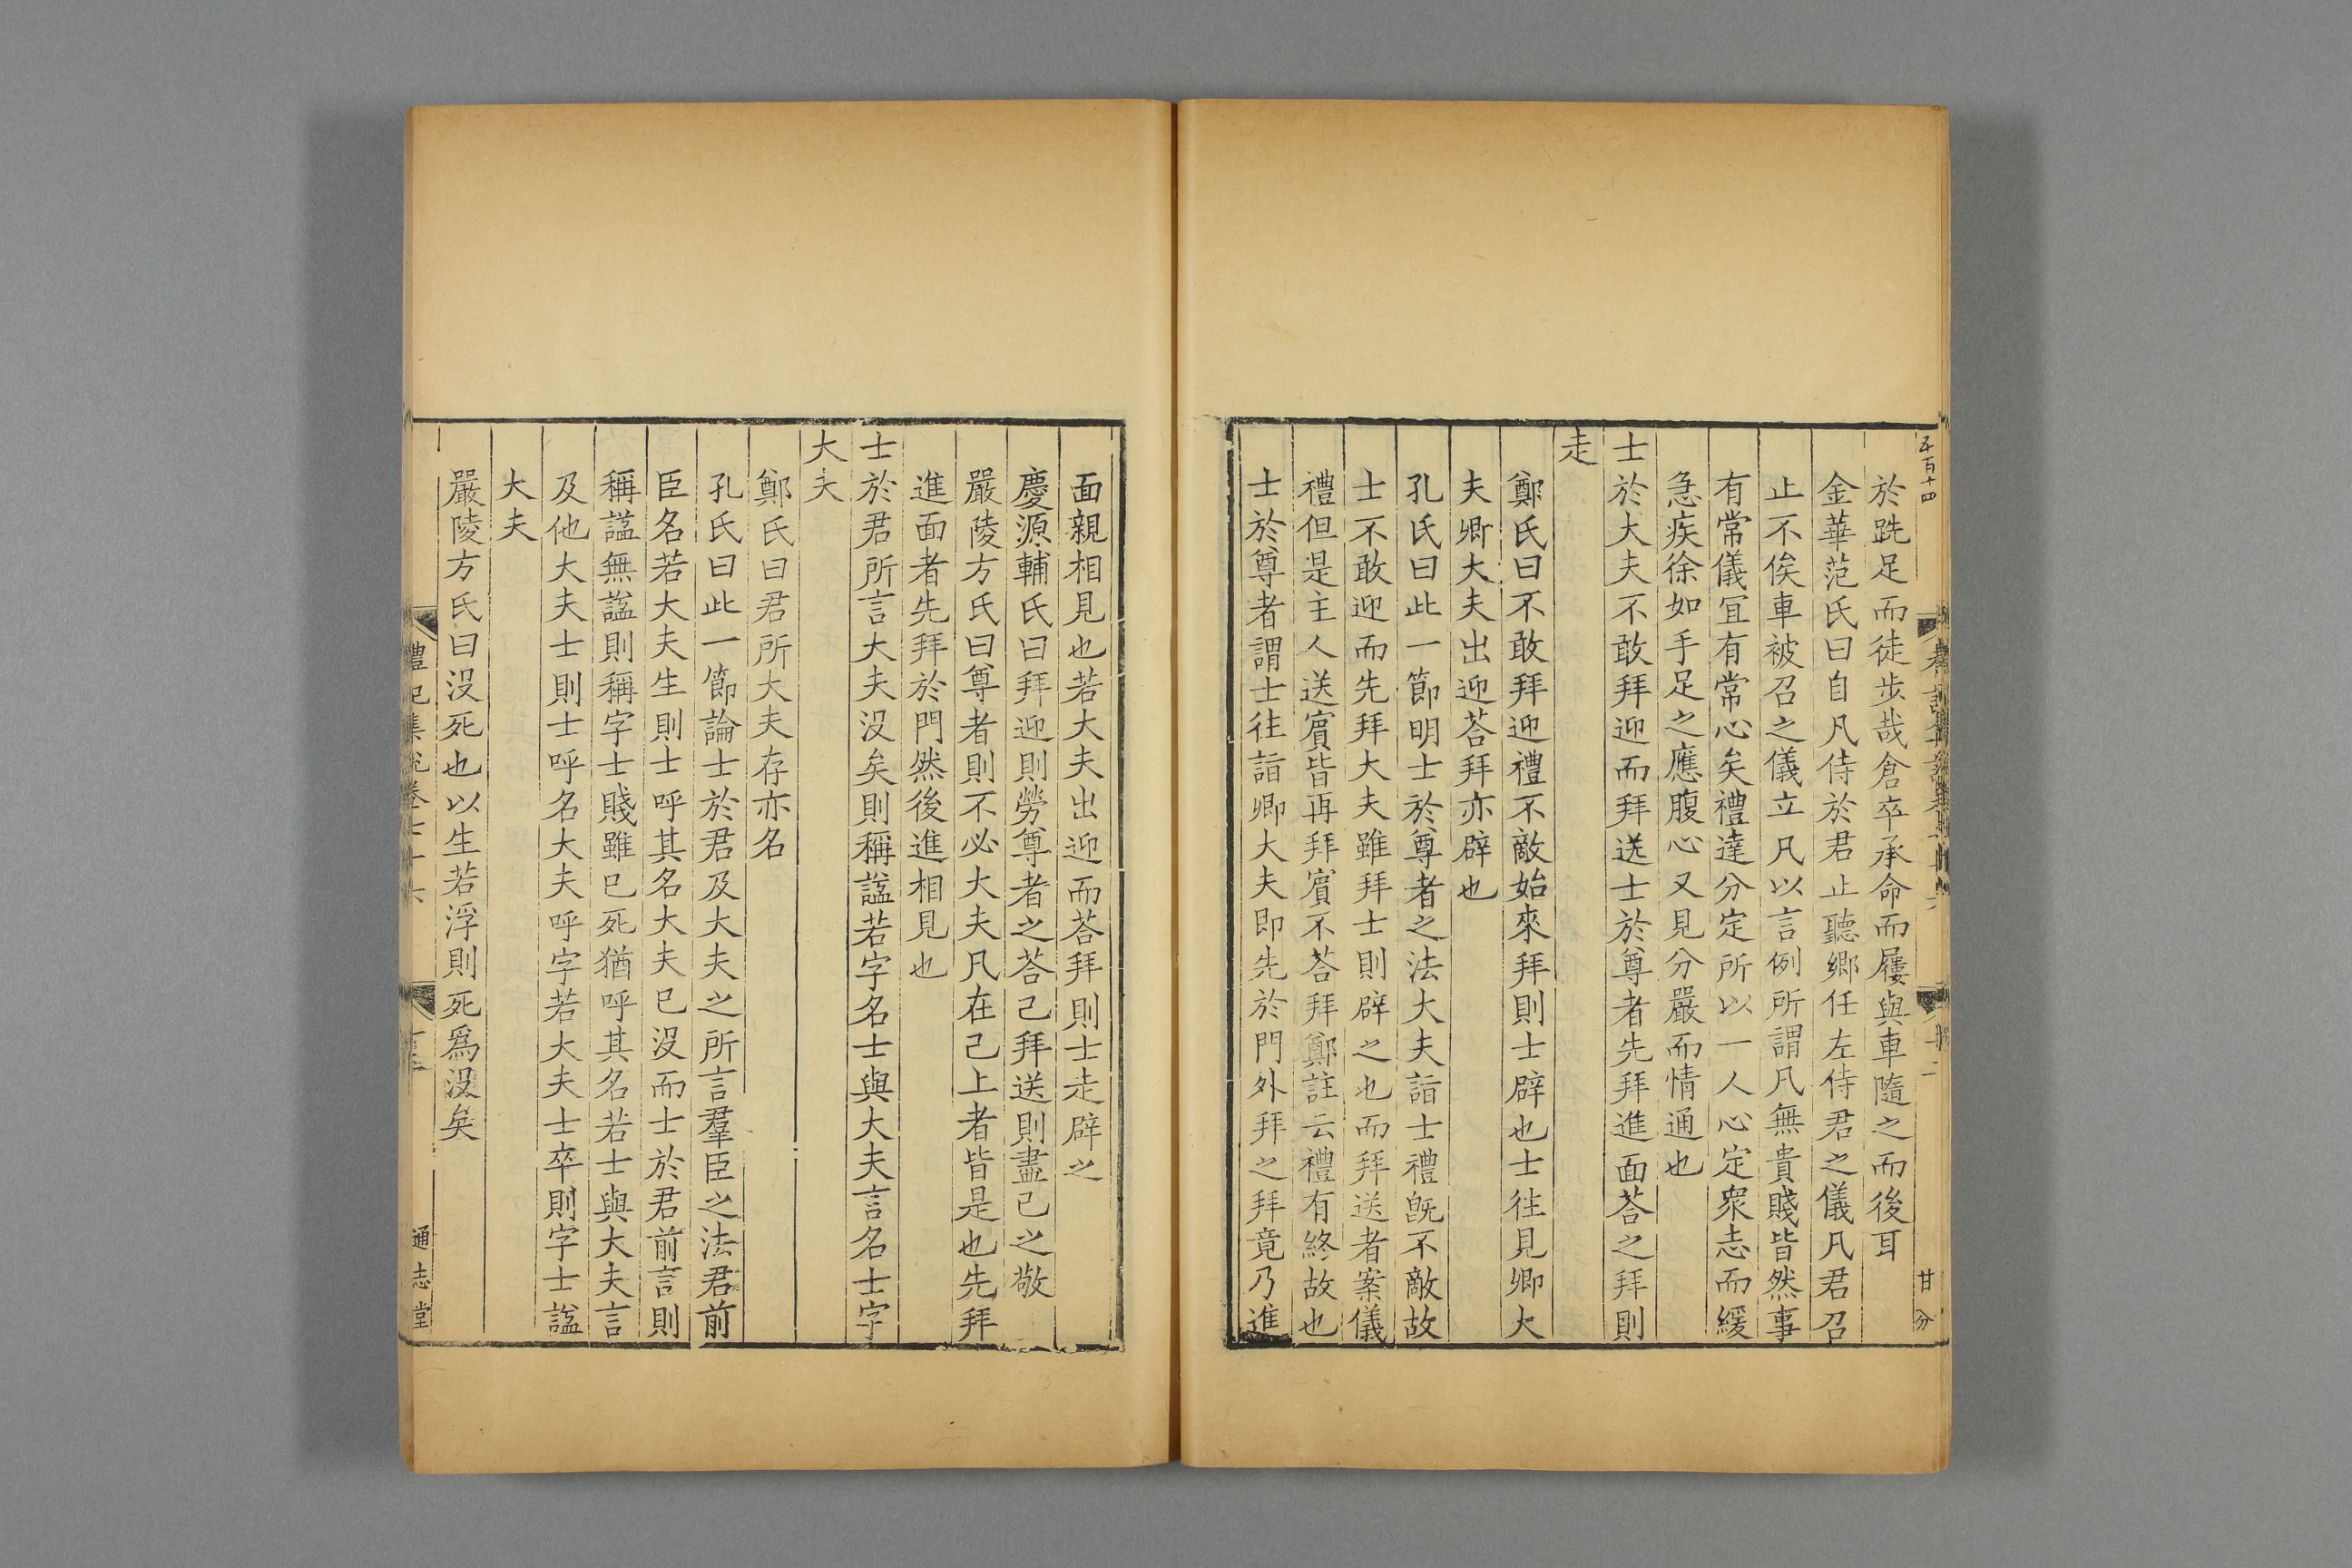 五百十四
甘 分
於跣足而徒步哉倉卒承命而屨與車隨之而後耳
金華范氏曰自凡侍於君止聽鄉任左侍君之儀凡君召
止不俟車被召之儀立凡以言例所謂凡無貴賤皆然事
有常儀宜有常心矣禮達分定所以一人心定衆志而緩
急疾徐如手足之應腹心又見分嚴而情通也
士於大夫不敢拜迎而拜送士於尊者先拜進面荅之拜則
走
鄭氏曰不敢拜迎禮不敵始來拜則士辟也士往見卿大
夫卿大夫出迎荅拜亦辟也
孔氏曰此一節明士於尊者之法大夫詣士禮旣不敵故
士不敢迎而先拜大夫雖拜士則辟之也而拜送者案儀
禮但是主人送賓皆再拜賓不荅拜鄭註云禮有終故也
士於尊者謂士往詣卿大夫即先於門外拜之拜竟乃進
面親相見也若大夫出迎而荅拜則士走辟之
慶源輔氏曰拜迎則勞尊者之荅己拜送則盡己之敬
嚴陵方氏曰尊者則不必大夫凡在己上者皆是也先拜
進面者先拜於門然後進相見也
士於君所言大夫沒矣則稱諡若字名士與大夫言名士字
大夫
鄭氏曰君所大夫存亦名
孔氏曰此一節論士於君及大夫之所言羣臣之法君前
臣名若大夫生則士呼其名大夫已沒而士於君前言則
稱諡無諡則稱字士賤雖已死猶呼其名若士與大夫言
及他大夫士則士呼名大夫呼字若大夫士卒則字士諡
大夫
嚴陵方氏曰沒死也以生若浮則死爲沒矣
禮記集說卷七十六
通志堂